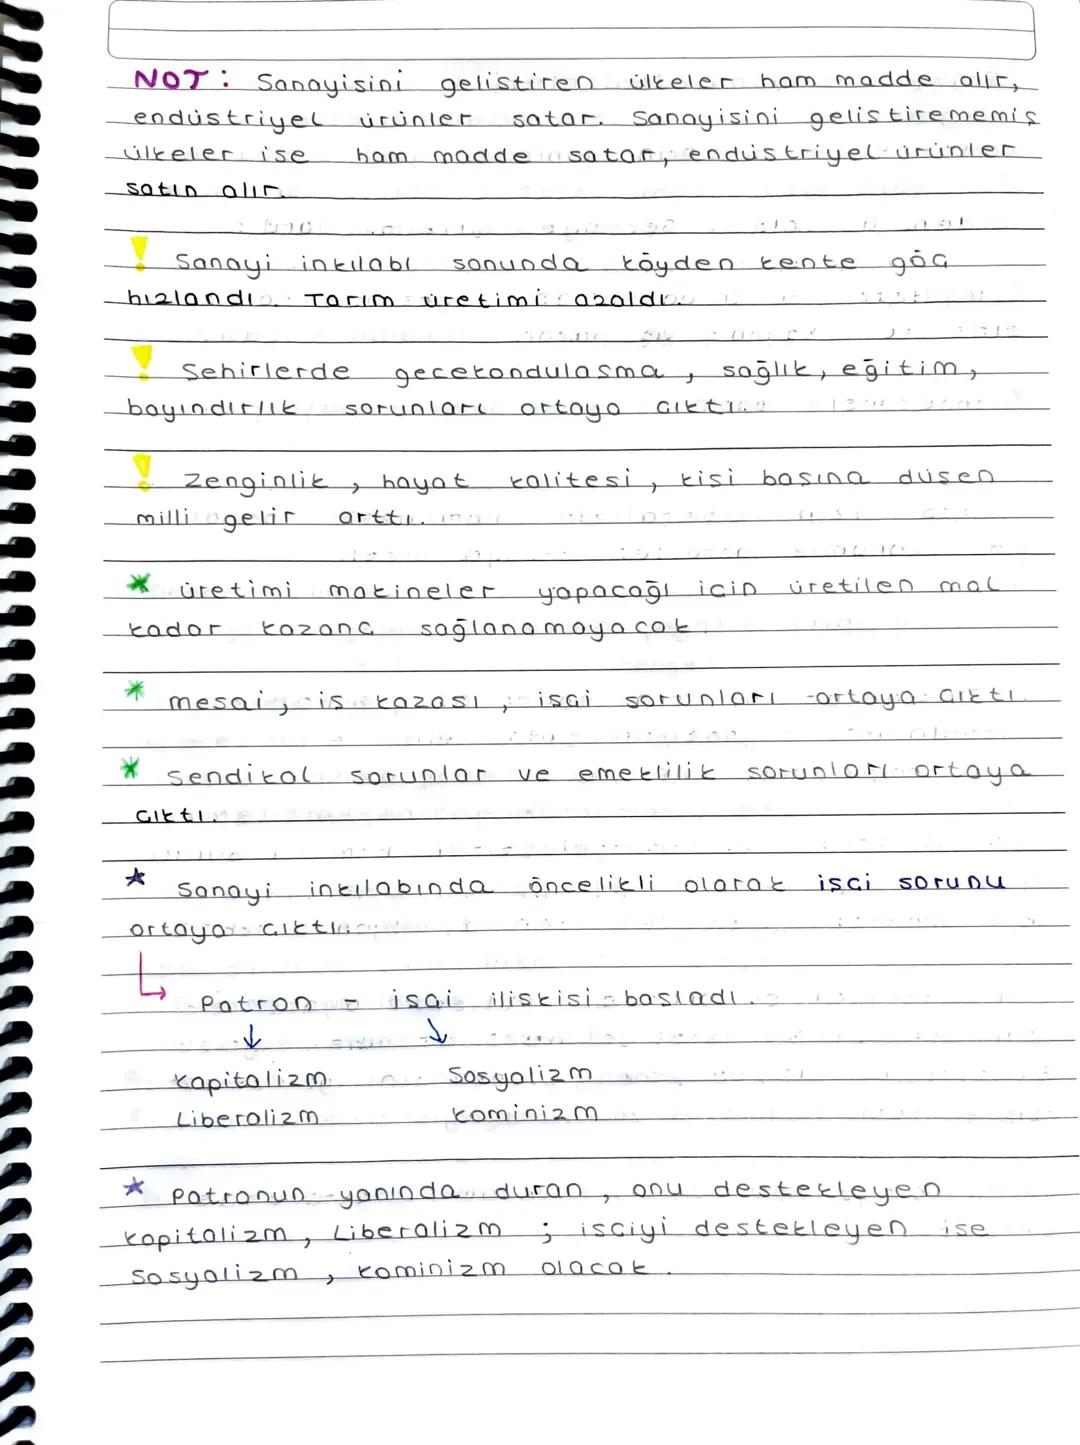 NOT: Sanayisini geliştiren ülkeler ham madde alır,
endüstriyel ürünler satar. Sanayisini geliştirememiş
ülkeler ise ham madde satar, endüstriyel ürünler
satın alır.
! Sanayi inkılabı sonunda köyden kente göç
hızlandı. Tarım üretimi azaldı.
! Şehirlerde gecekondulaşma, sağlık, eğitim,
bayındırlık sorunları ortaya çıktı.
! Zenginlik, hayat kalitesi, kişi başına düşen
milli gelir arttı.
* üretimi makineler yapacağı için üretilen mal
kadar kazanç sağlanamayacak.
* mesai, iş kazası, işçi sorunları ortaya çıktı.
* Sendikal sorunlar ve emeklilik sorunları ortaya
çıktı.
☆ Sanayi inkılabında öncelikli olarak işçi sorunu
ortaya çıktı.
↳ Patron - işçi ilişkisi başladı.
↓ ↓
Kapitalizm Sosyalizm
Liberalizm Kominizm
☆ Patronun yanında duran, onu destekleyen
kapitalizm, Liberalizm; işçiyi destekleyen ise
Sosyalizm, kominizm olacak.